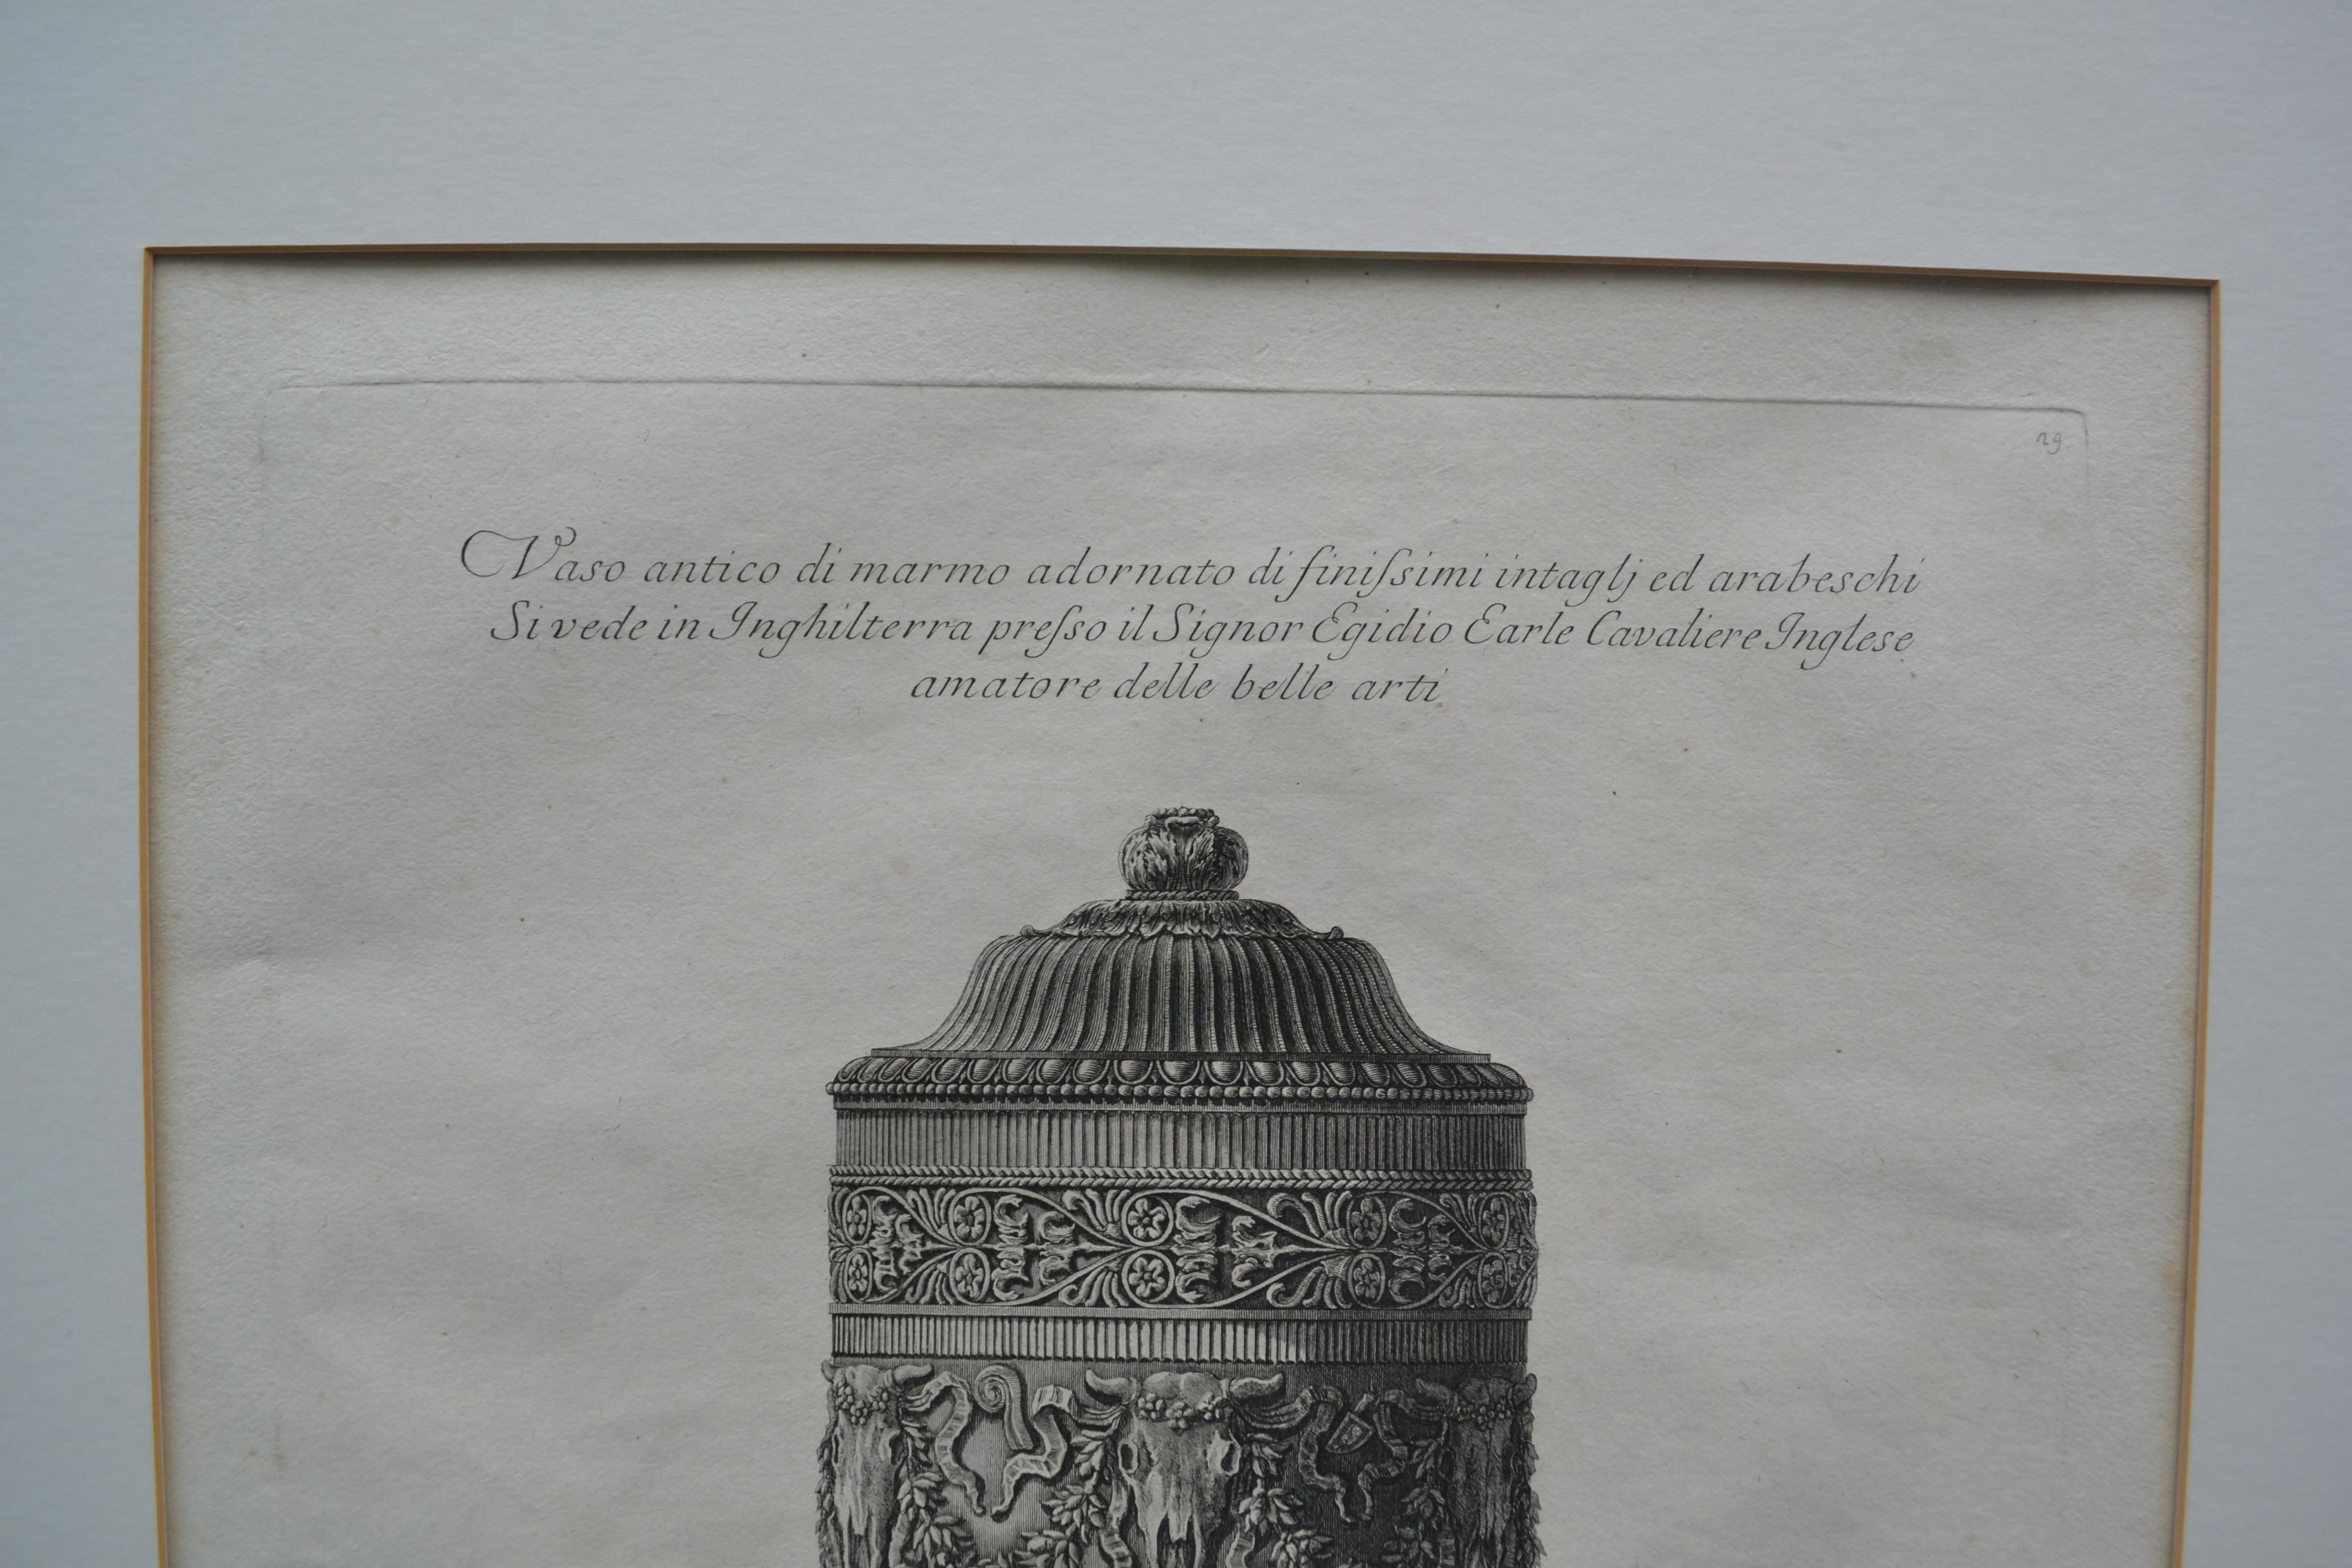 29.
Vaso antico di marmo adornato di finiſsimi intaglj ed arabeschi
Si vede in Inghilterra preſso il Signor Egidio Earle Cavaliere Inglese
amatore delle belle arti